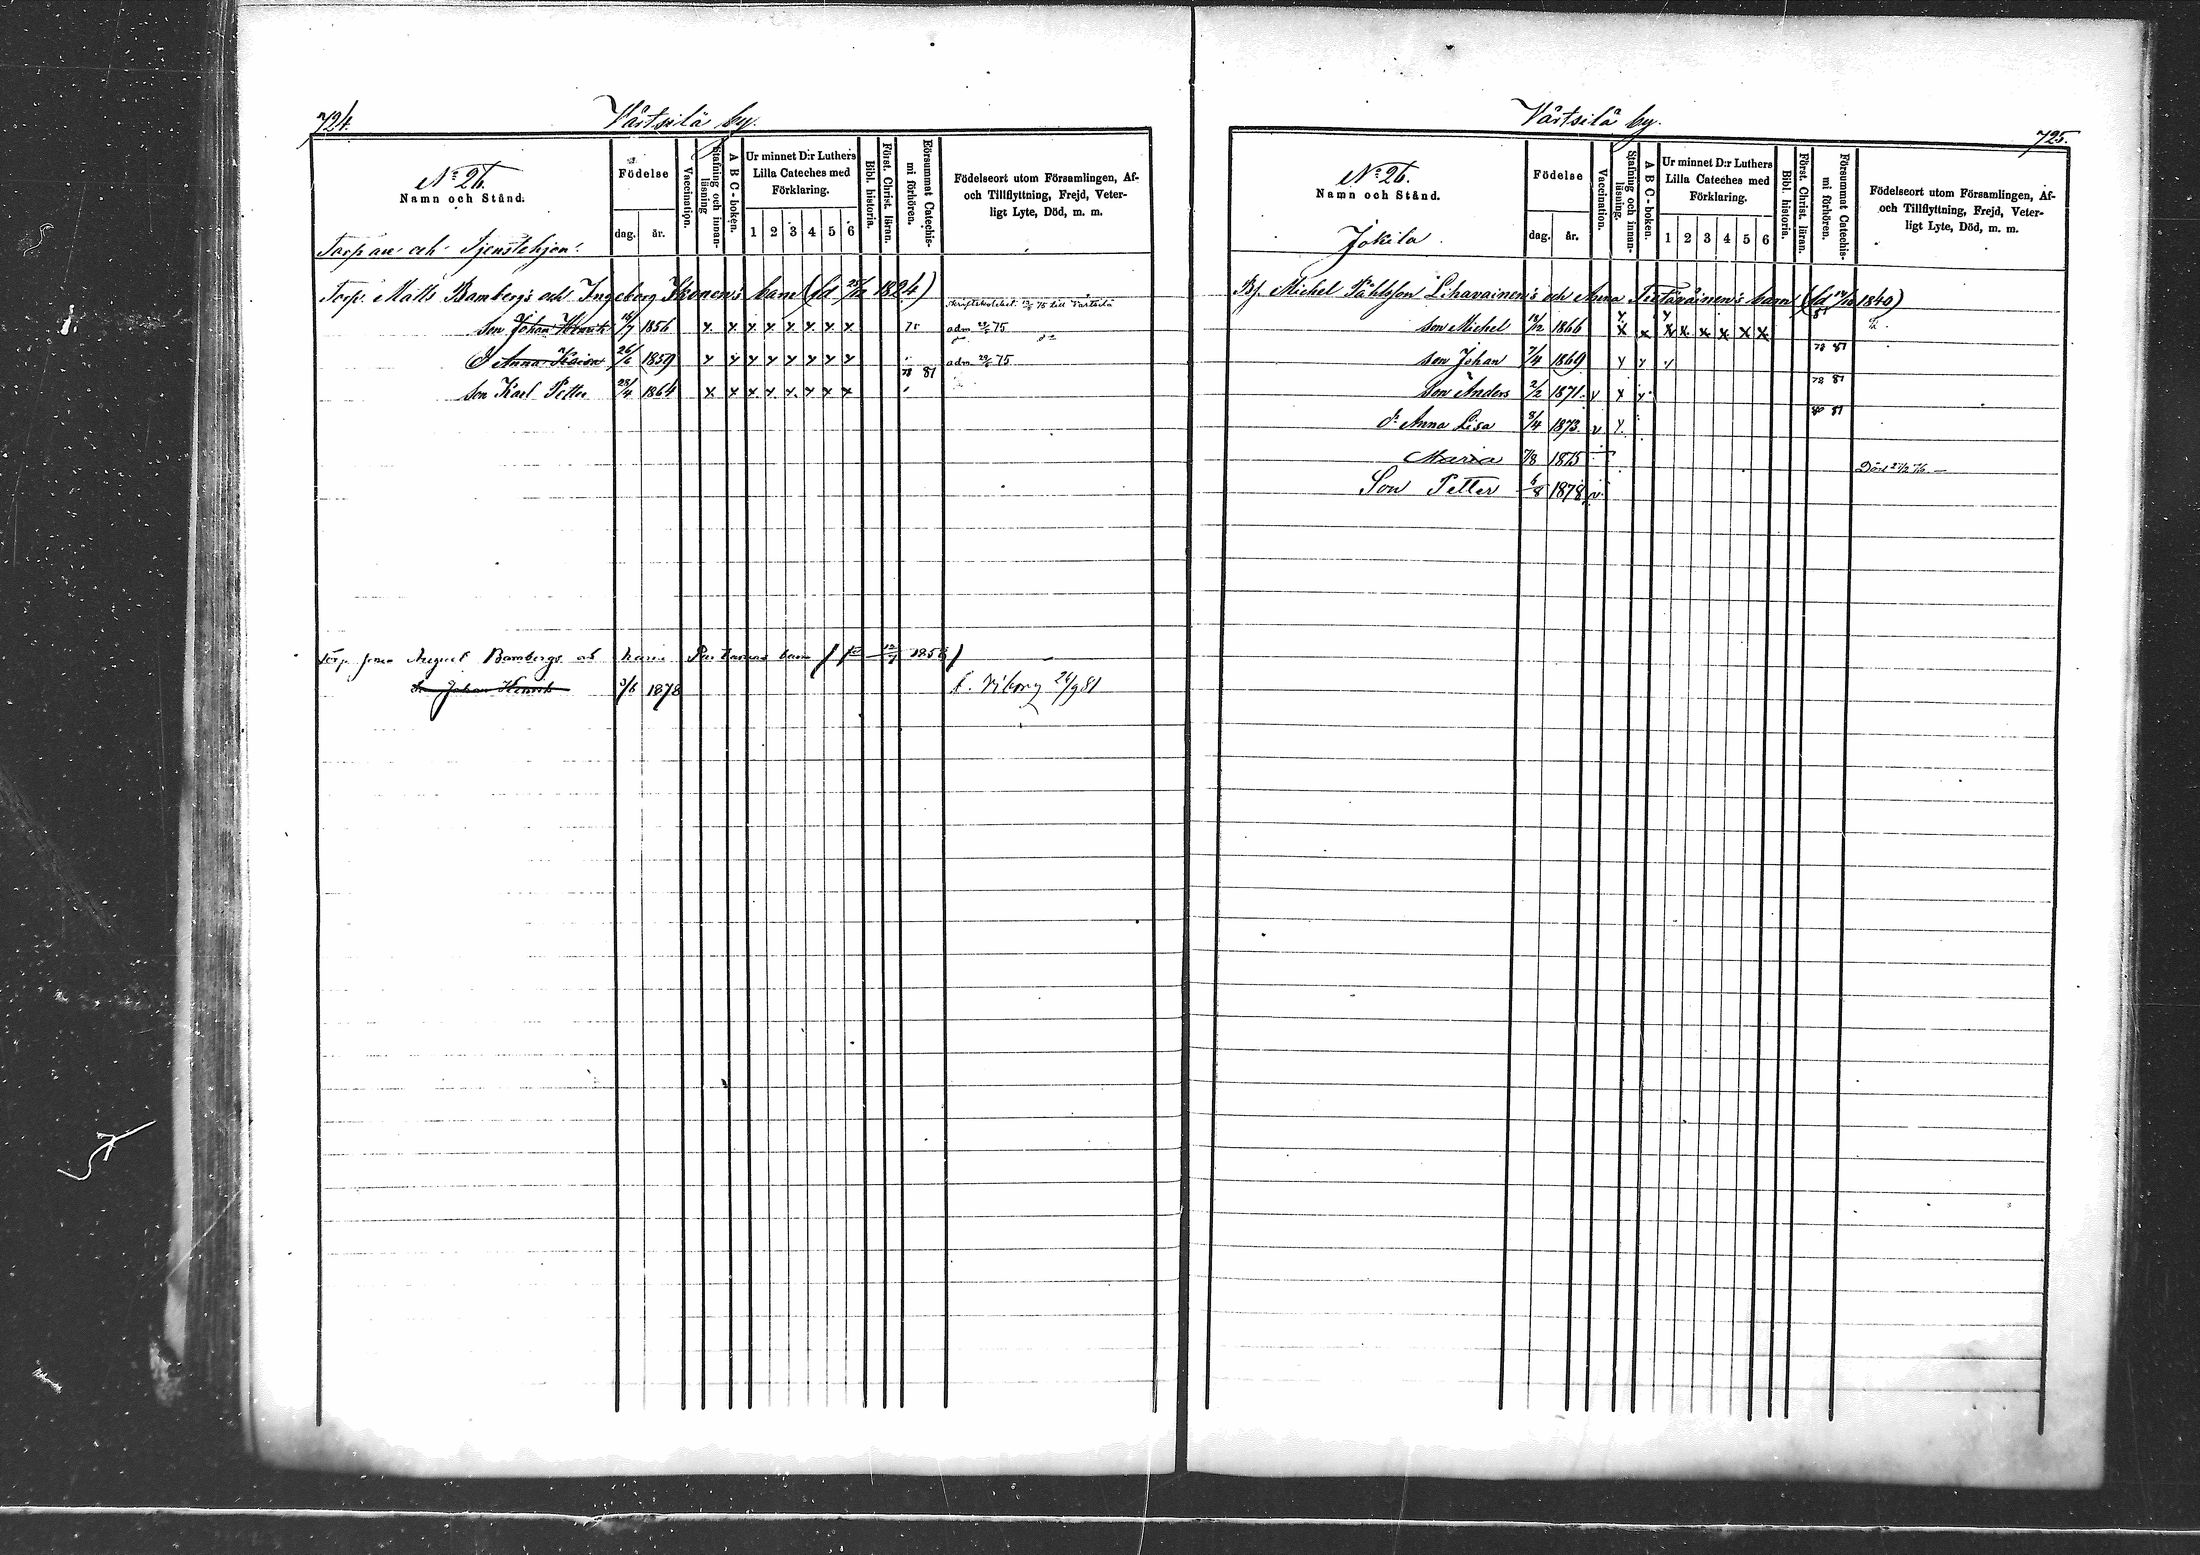 724.
Värtsilä by.
No 26.
Namn och Stånd.
Torpare och Tjenstehjon.
Födelse
dag.
år.
Vaccination.
Stafning och innan-
läsning
A B C-boken.
Ur minnet D:r Luthers
Lilla Cateches med
Förklaring.
1 2 3 4 5 6
Bibl. historia.
Först. Christ. läran.
Försummat Catechis-
mi förhören.
Födelseort utom Församlingen, Af-
och Tillflyttning, Frejd, Veter-
ligt Lyte, Död, m. m.
Torp. Matts Bamberg's och Ingeborg Ikonen's barn (fd 25/12 1824)
till Värtsilä
Son Johan Henrik 16/7 1856 x x x x x x x x 75 adm 75
d Anna Karin 26/6 1859 x x x x x x x x adm 75
78 81
Son Karl Petter 28/4 1864 x x x x x x x x
Torp. August Bambergs barn (1856)
Johan Henrik 3/6 1878 f. Viborg 26/9 81
Värtsilä by.
725.
No 26.
Namn och Stånd.
Jokila.
Födelse
dag.
år.
Vaccination.
Stafning och innan-
läsning.
A B C-boken.
Ur minnet D:r Luthers
Lilla Cateches med
Förklaring.
1 2 3 4 5 6
Bibl. historia.
Först. Christ. läran.
Försummat Catechis-
mi förhören.
Födelseort utom Församlingen, Af-
och Tillflyttning, Frejd, Veter-
ligt Lyte, Död, m. m.
Michel Påhlsson Lihavainen's och Anna Tietäväinen's barn (fd 1840)
Son Michel 12/12 1866 x x x x x x x x 81
Son Johan 7/4 1869 x x x 78 81
Son Anders 2/2 1871. v x x 78 81
d: Anna Lisa 8/4 1873. v x 80 81
Maria 7/8 1875 Död
Son Petter 6/8 1878 v.